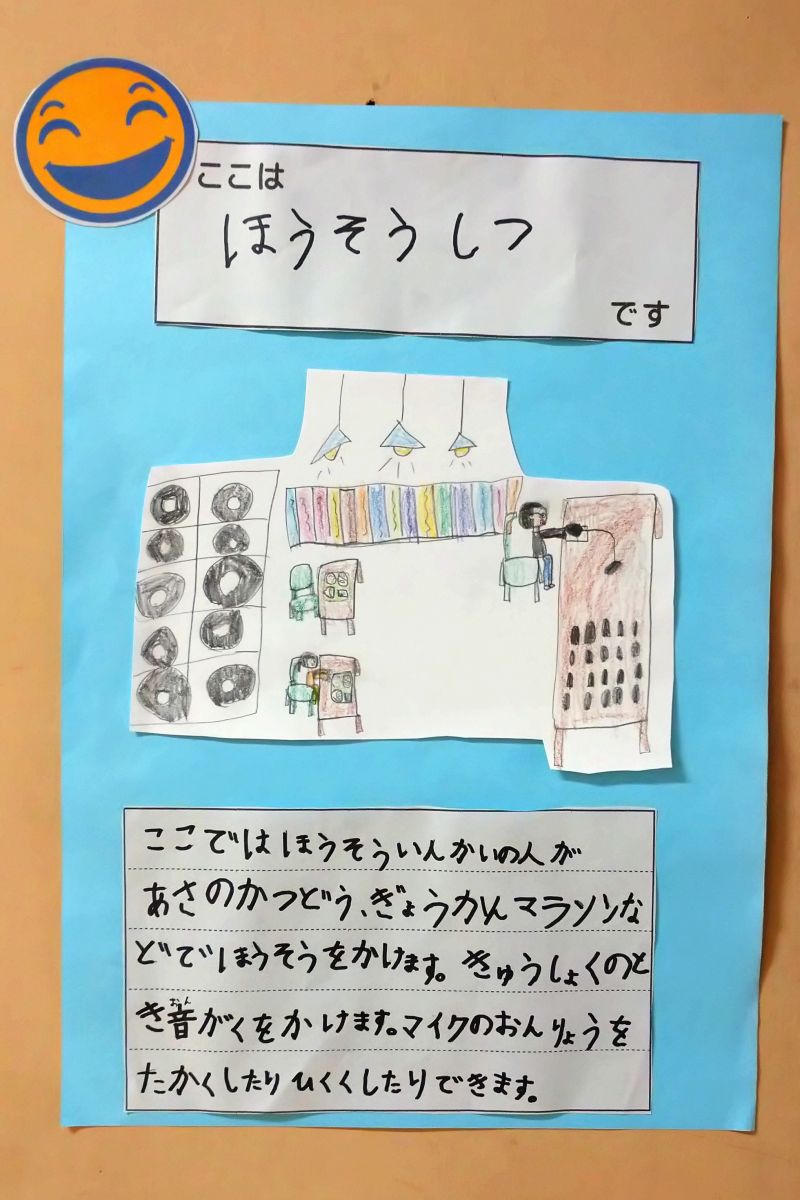 ここは
ほうそうしつ
です
ここではほうそういんかいの人が
あさのかつどう、ぎょうかんマラソンな
どでほうそうをかけます。きゅうしょくのと
おん
き音がくをかけます。マイクのおんりょうを
たかくしたりひくくしたりできます。